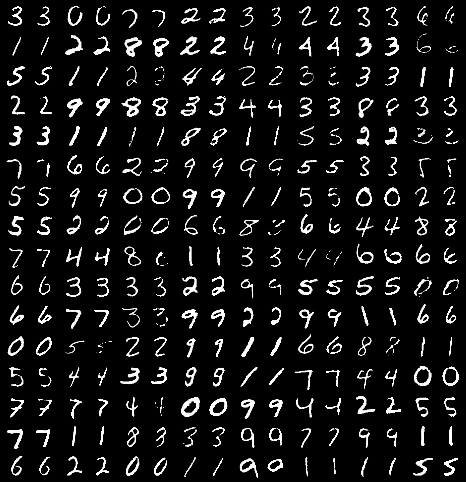 3 3 0 0 7 7 2 2 3 3 2 2 3 3 6 6
1 1 2 2 8 8 2 2 4 4 4 4 3 3 6 6
5 5 1 1 2 2 4 4 2 2 3 3 3 3 1 1
2 2 9 9 8 8 3 3 4 4 3 3 8 8 3 3
3 3 1 1 1 1 8 8 1 1 5 5 2 2 2 2
7 7 6 6 2 2 9 9 9 9 5 5 3 3 5 5
5 5 9 9 0 0 9 9 1 1 5 5 0 0 2 2
5 5 2 2 0 0 6 6 8 8 6 6 4 4 8 8
7 7 4 4 8 1 1 3 3 4 4 6 6 6 6
6 6 3 3 3 3 2 2 9 9 5 5 5 5 0 0
6 6 7 7 3 3 9 9 2 2 9 9 1 1 6 6
0 0 5 5 2 2 9 9 1 1 6 6 8 8 1 1
5 5 4 4 3 3 9 9 1 1 7 7 4 4 0 0
7 7 7 7 4 4 0 0 9 9 4 4 2 2 5 5
7 7 1 1 8 8 3 3 9 9 7 7 9 9 1 1
6 6 2 2 0 0 1 1 9 9 1 1 1 1 5 5